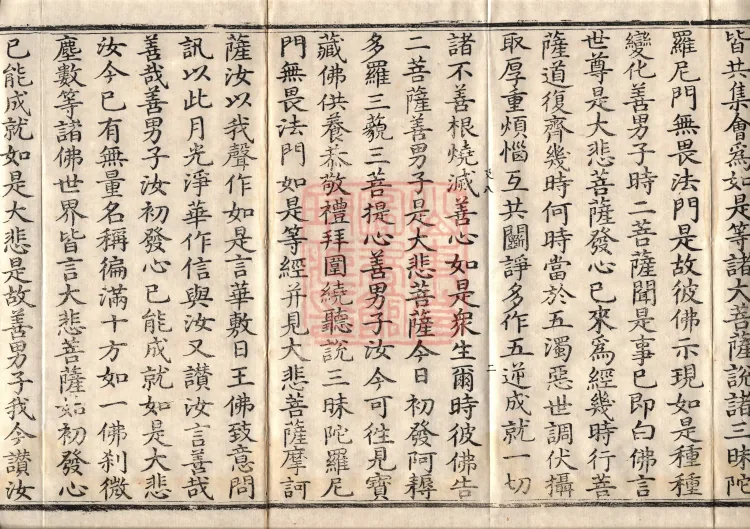 皆共集會爲如是等諸大菩薩說諸三昧陀
羅尼門無畏法門是故彼佛示現如是種種
變化善男子時二菩薩聞是事已即白佛言
世尊是大悲菩薩發心已來爲經幾時行菩
薩道復齊幾時何時當於五濁惡世調伏攝
取厚重煩惱互共鬪諍多作五逆成就一切
諸不善根燒滅善心如是衆生爾時彼佛告
二菩薩善男子是大悲菩薩今日初發阿耨
多羅三藐三菩提心善男子汝今可徃見寶
藏佛供養恭敬禮拜圍繞聽說三昧陀羅尼
門無畏法門如是等經并見大悲菩薩摩訶
薩汝以我聲作如是言華敷日王佛致意問
訊以此月光淨華作信與汝又讃汝言善哉
善哉善男子汝初發心已能成就如是大悲
汝今已有無量名稱徧滿十方如一佛刹微
塵數等諸佛世界皆言大悲菩薩始初發心
已能成就如是大悲是故善男子我今讃汝
二